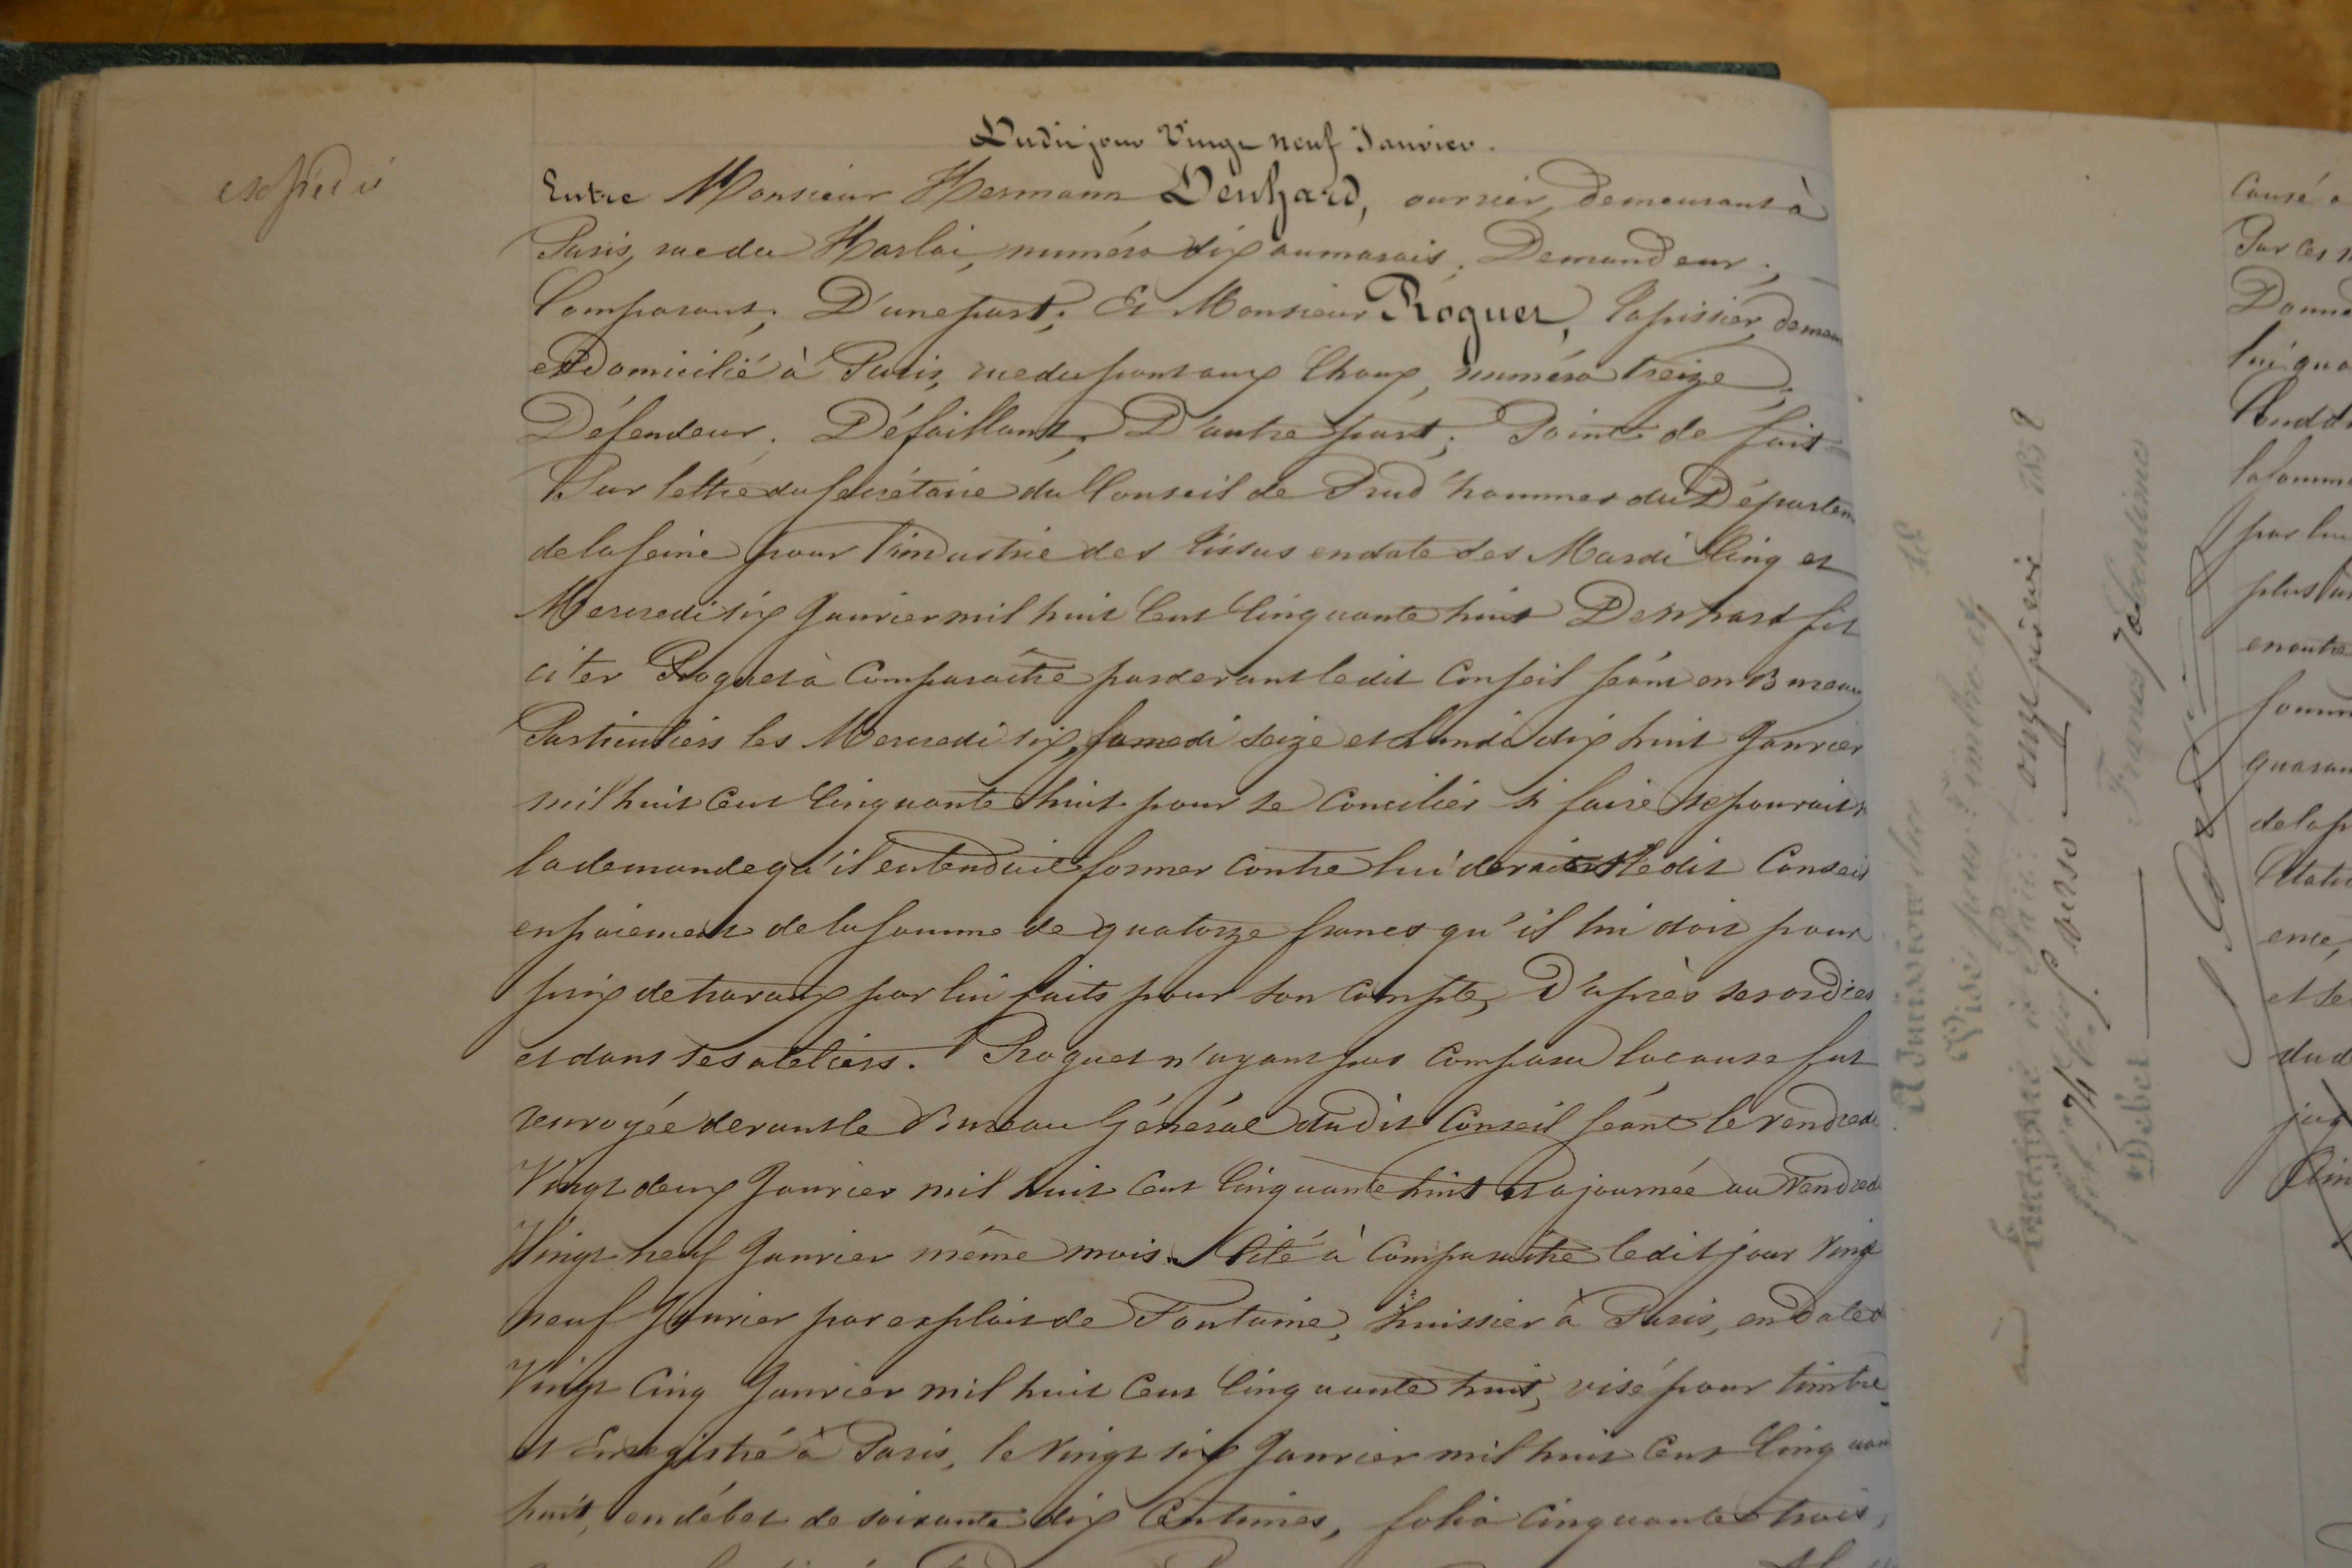 expédié
Dudit jour Vingt neuf Janvier.
Entre Monsieur Hermann Denhard, ouvrier, demeurant à
Paris, rue du Harlai, numéro dix au marais; Demandeur;
Comparant; D'une part; Et Monsieur Roguet, tapissier, demeu
et Domicilié à Paris, rue du pont aux Choux, numéro treize,
Défendeur; Défaillant; D'autre part; Point de fait
Par lettre du secrétaire du Conseil de Prud'hommes du Départem
de la seine pour l'industrie des tissus en date des Mardi Cinq et
Mercredi six Janvier mil huit Cent Cinquante huit Denhard fit
citer Roguet à Comparaître par devant ledit Conseil séant en Bureaux
Particuliers les Mercredi six, samedi seize et Lundi dix huit Janvier
mil huit Cent Cinquante huit pour se Concilier si faire se pouvait
la demande qu'il entendait former contre lui devant ledit Conseil
en paiement de la somme de quatorze francs qu'il lui doit pour
prix de travaux par lui faits pour son Compte, D'après ses ordres
et dans ses ateliers. Roguet n'ayant pas Comparu la cause fut
renvoyée devant le Bureau Général dudit Conseil séant le Vendredi
Vingt deux Janvier mil huit Cent Cinquante huit et ajournée au Vendredi
Vingt neuf Janvier même mois. Cité à Comparaître ledit jour Vingt
neuf Janvier par exploit de Fontaine, huissier à Paris, en date d
Vingt Cinq Janvier mil huit Cent Cinquante huit, visé pour timbre
et Enregistré à Paris, le Vingt six Janvier mil huit Cent Cinquan
huit, en débet de soixante dix Centimes, folio Cinquante trois,
Visé pour timbre et
Enregistré à Paris
verso
Débet
francs
centimes
Causé
Par ces
Donne
lui
la somme
par lui
plus
en outre
somme
quaran
de la p
ence,
et se
dud
jug